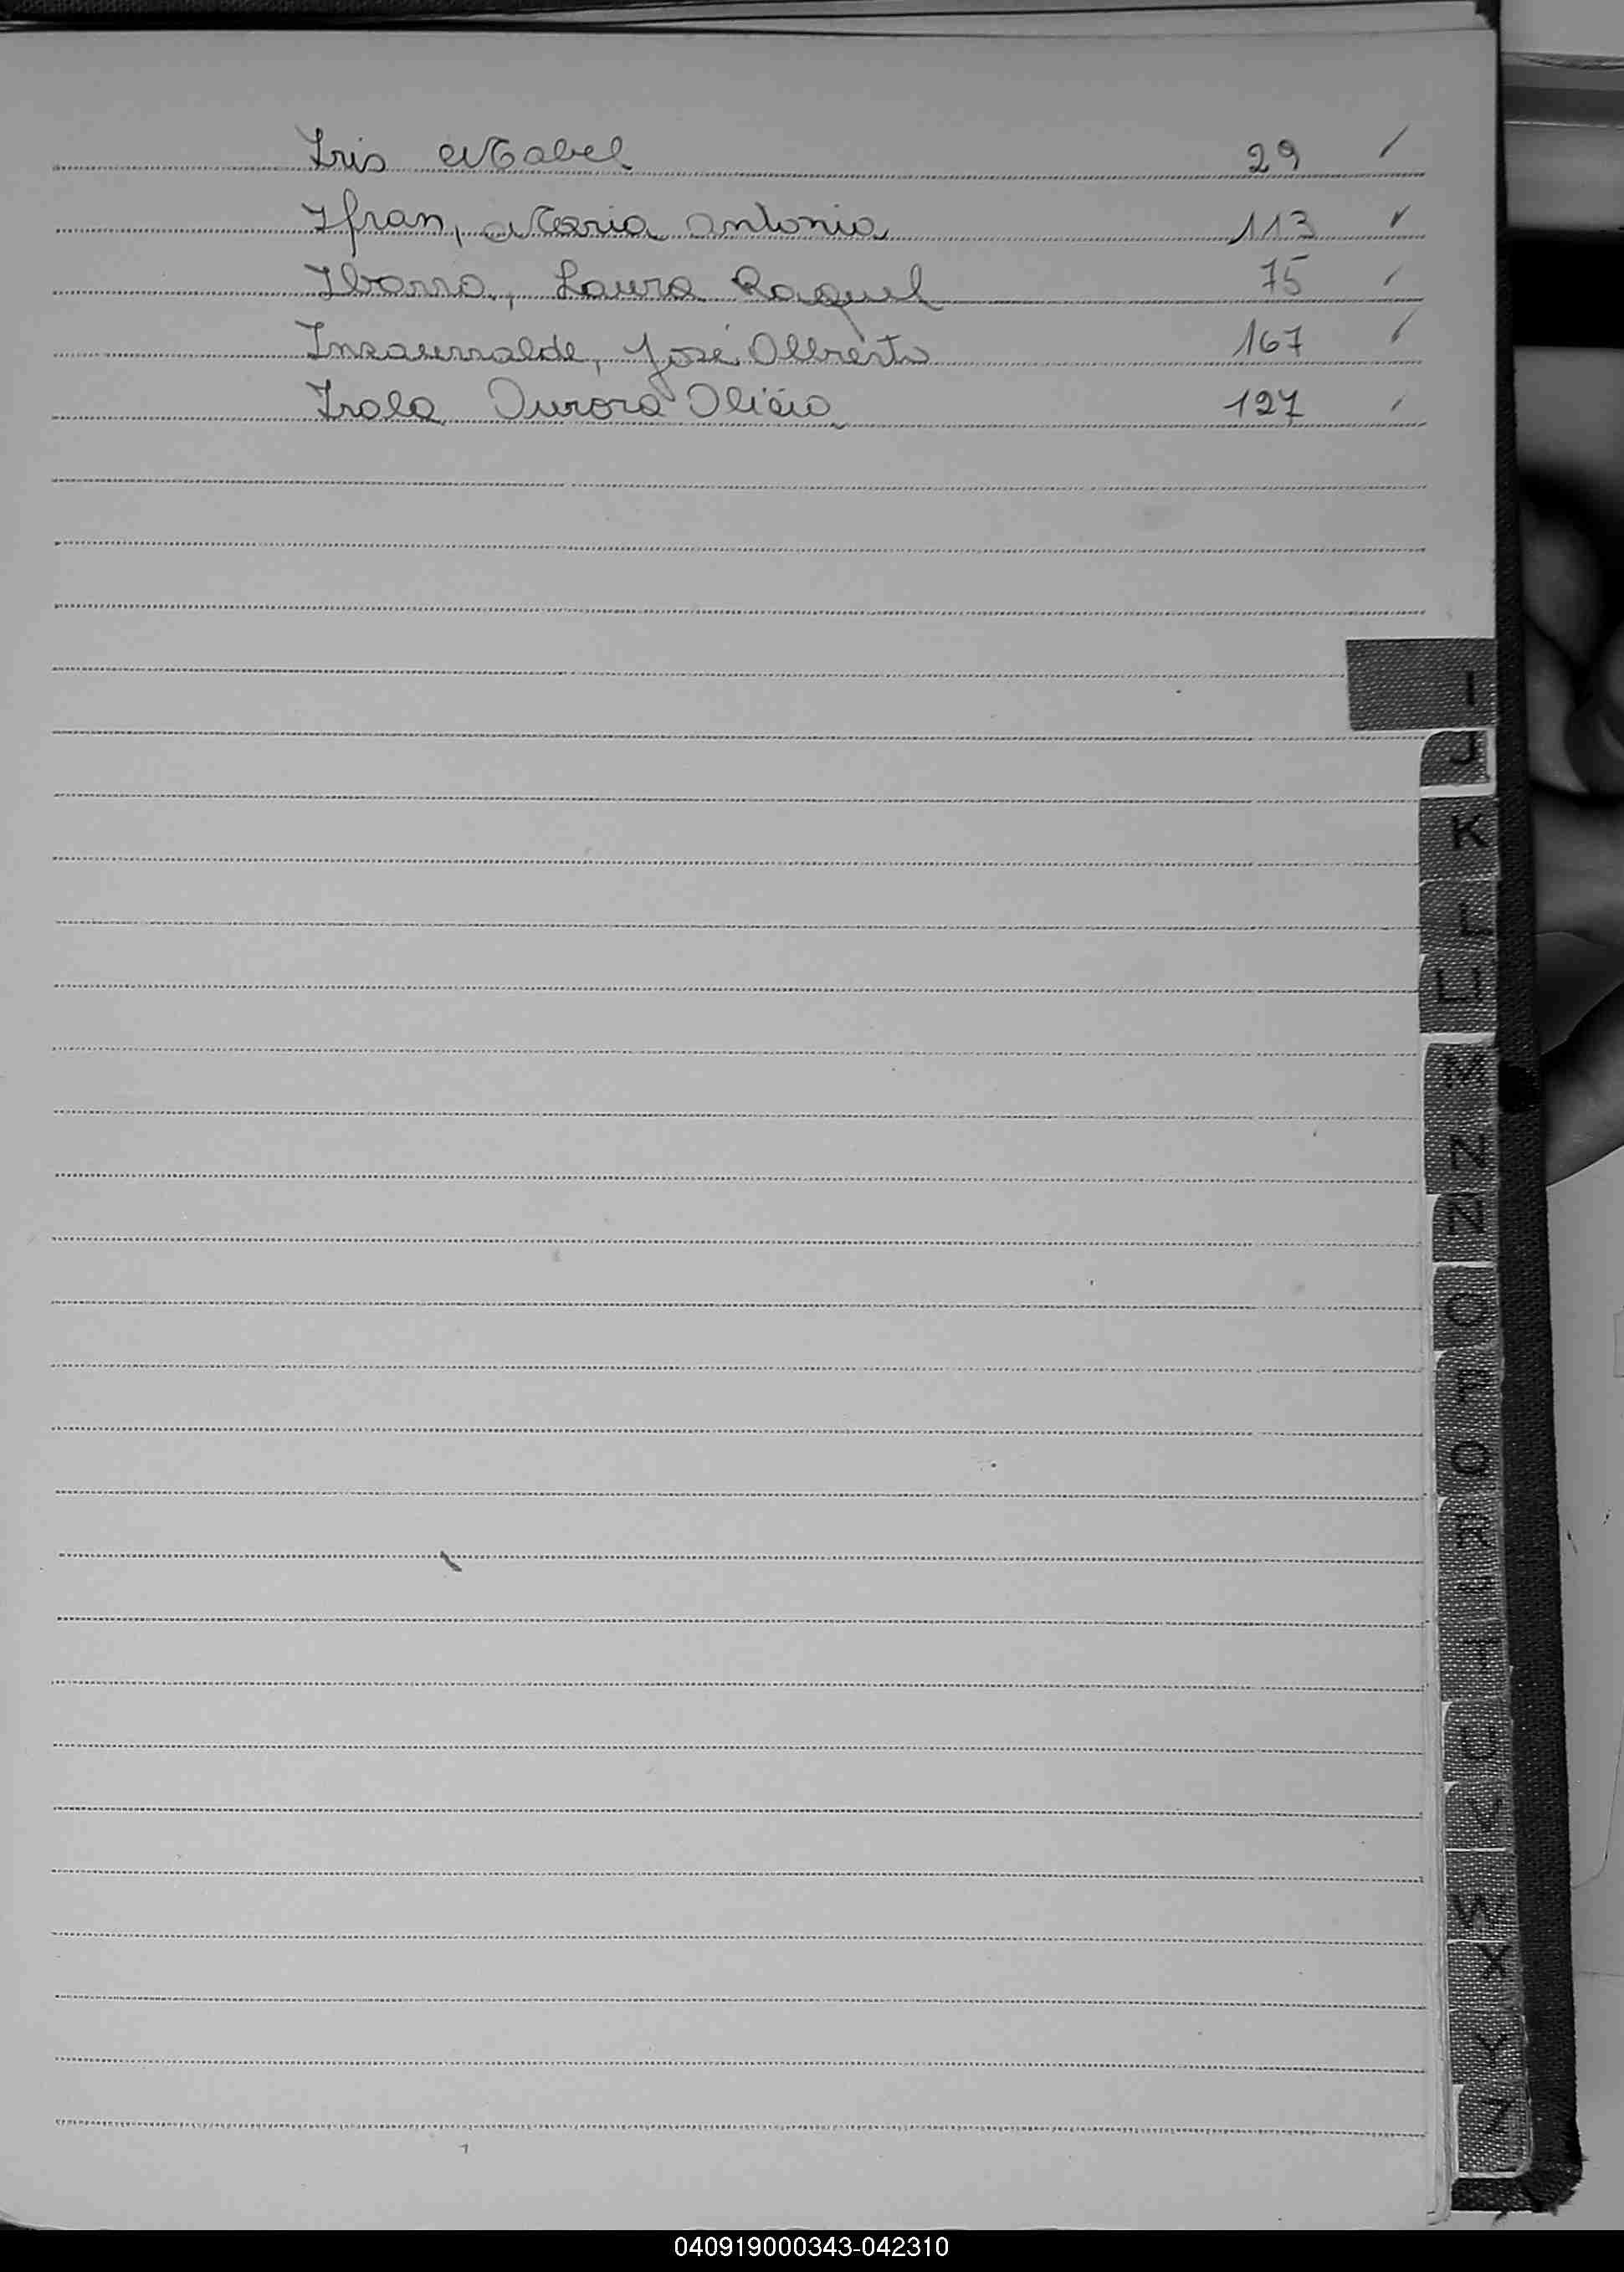 Iris Mabel 29
Ifran, Maria Antonia 113
Ibarra, Laura Raquel 75
Insaurralde, José Alberto 167
Irala Aurora Alicia 127
I
J
K
L
LL
M
N
Ñ
O
P
Q
R
S
T
U
V
W
X
Y
Z
040919000343-042310